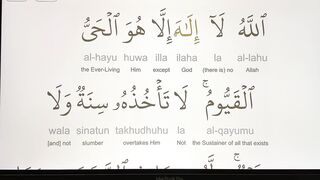 ٱللَّهُ لَآ إِلَـٰهَ إِلَّا هُوَ ٱلْحَىُّ
al-hayu huwa illa ilaha la al-lahu
the Ever-Living Him except God (there is) no Allah
ٱلْقَيُّومُ ۚ لَا تَأْخُذُهُۥ سِنَةٌ وَلَا
wala sinatun takhudhuhu la al-qayumu
[and] not slumber overtakes Him Not the Sustainer of all that exists